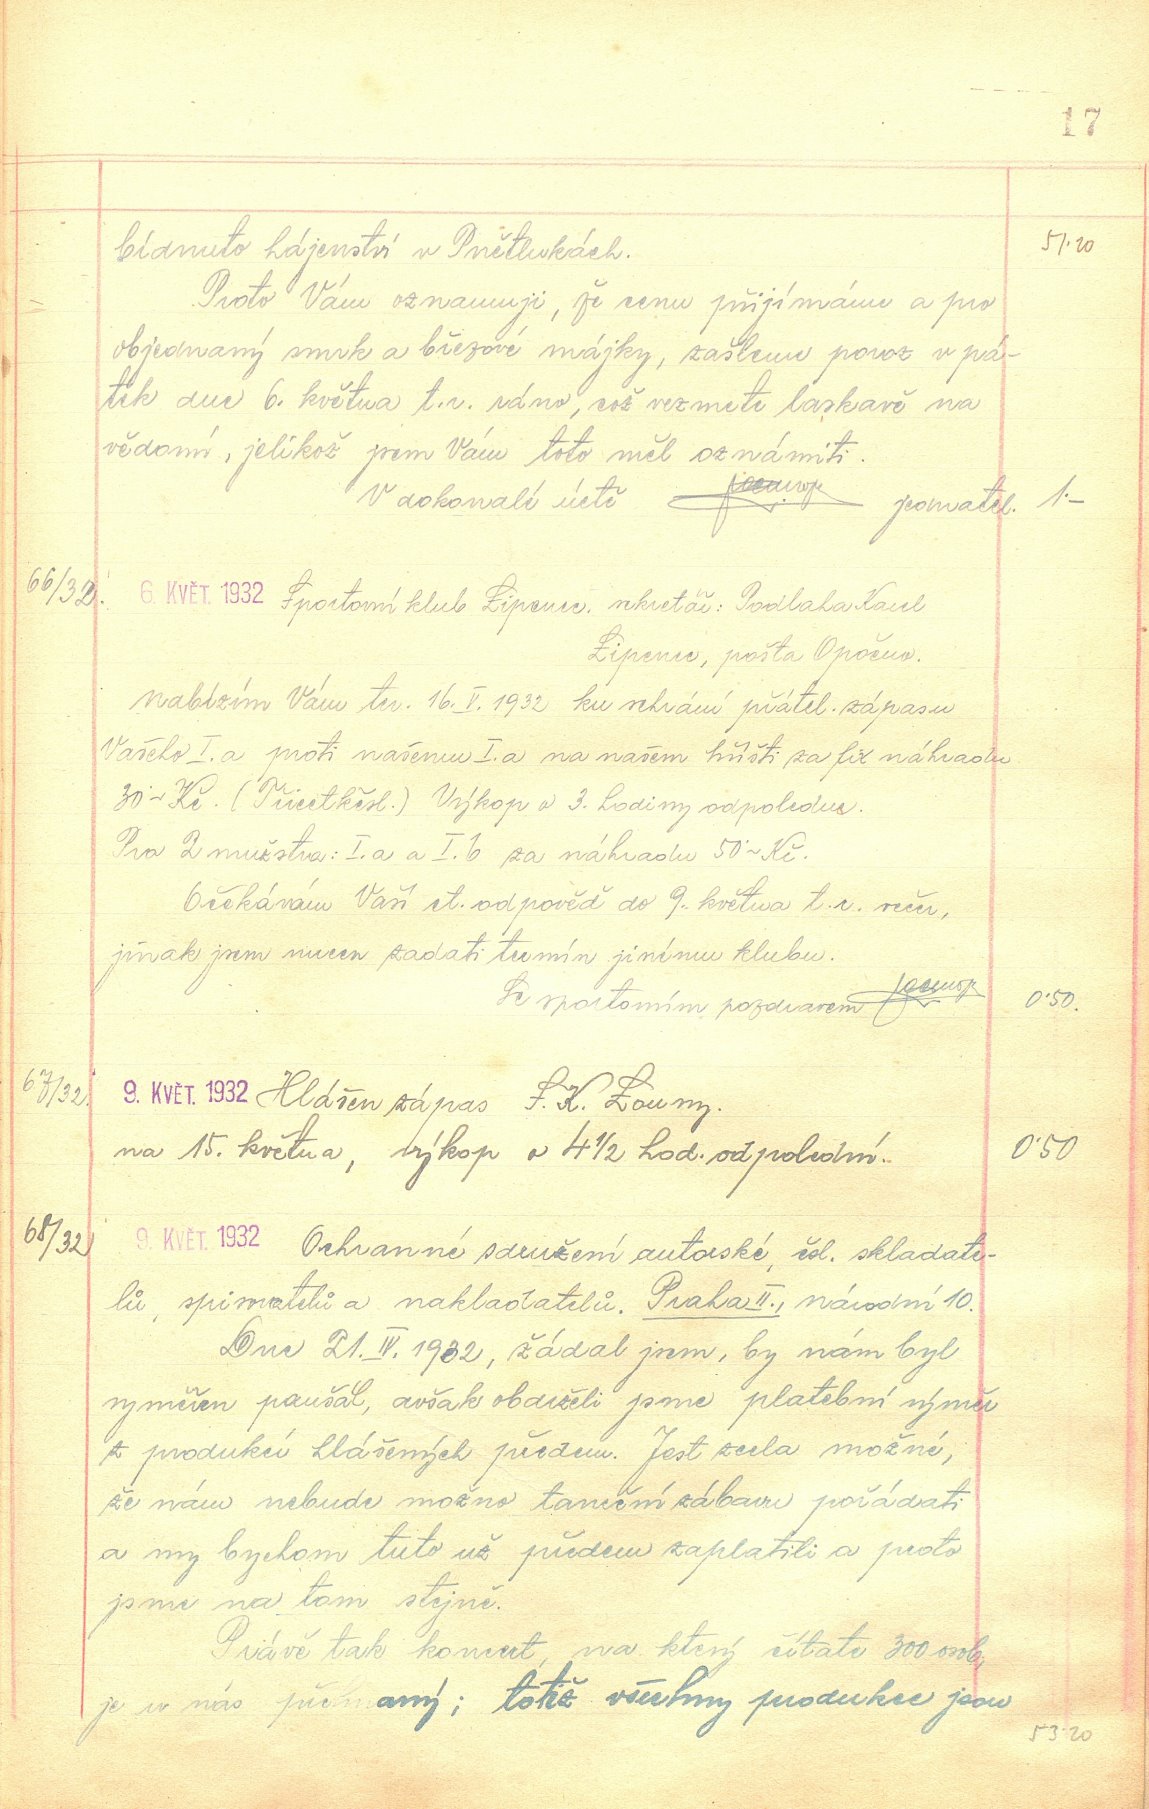 17
bídnuto hájenství v Pnětlukách. 51·20
Proto Vám oznamuji, že cenu přijímáme a pro
objednaný smrk a březové májky, zašleme povoz v pá-
tek dne 6. května t.r. ráno, což vezmete laskavě na
vědomí, jelikož jsem Vám toto měl oznámiti.
V dokonalé úctě jednatel. 1·-
66/32. 6. KVĚT. 1932 Sportovní klub Lipenec. sekretář: Podlaha Karel
Lipenec, pošta Opočno.
Nabízím Vám ter. 16. V. 1932 ku sehrání přátel. zápasu
Vašeho I.a proti našemu I.a na našem hřišti za fix náhradu
30·- Kč. (Třicetkčsl.) Výkop o 3. hodiny odpoledne.
Pro 2 mužstva: I.a a I.b za náhradu 50·- Kč.
Očekávám Vaší ct. odpověď do 9. května t.r. večer,
jinak jsem nucen zadati termín jinému klubu.
Se sportovním pozdravem 0·50.
67/32. 9. KVĚT. 1932 Hlášen zápas S.K. Louny.
na 15. května, výkop o 4 1/2 hod. odpolední. 0·50
68/32 9. KVĚT. 1932 Ochranné sdružení autorské, čsl. skladate-
lů, spisovatelů a nakladatelů. Praha II., národní 10.
Dne 21. IV. 1932, žádal jsem, by nám byl
vyměřen paušál, avšak obdrželi jsme platební výměr
z produkcí hlášených předem. Jest zcela možné,
že nám nebude možno taneční zábavu pořádati
a my bychom tuto už předem zaplatili a proto
jsme na tom stejně.
Právě tak koncert, na který čítáte 300 osob,
je u nás; totiž všechny produkce jsou
53·20